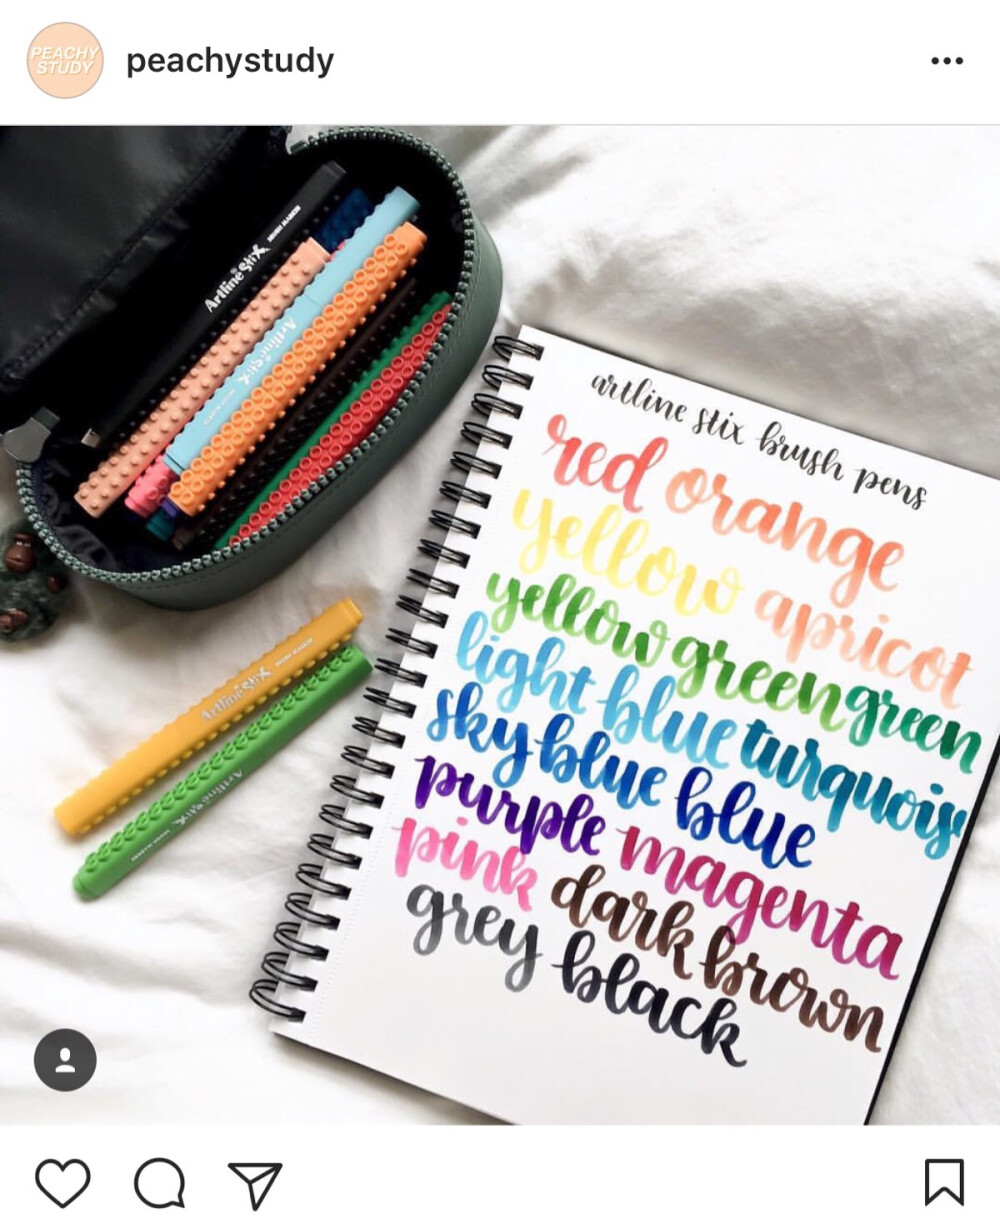 PEACHY
STUDY
peachystudy
Artline Stix BRUSH MARKER
Artline Stix
Artline Stix BRUSH MARKER
Artline Stix BRUSH MARKER
artline stix brush pens
red orange
yellow apricot
yellow green green
light blue turquois
sky blue blue
purple magenta
pink dark brown
grey black